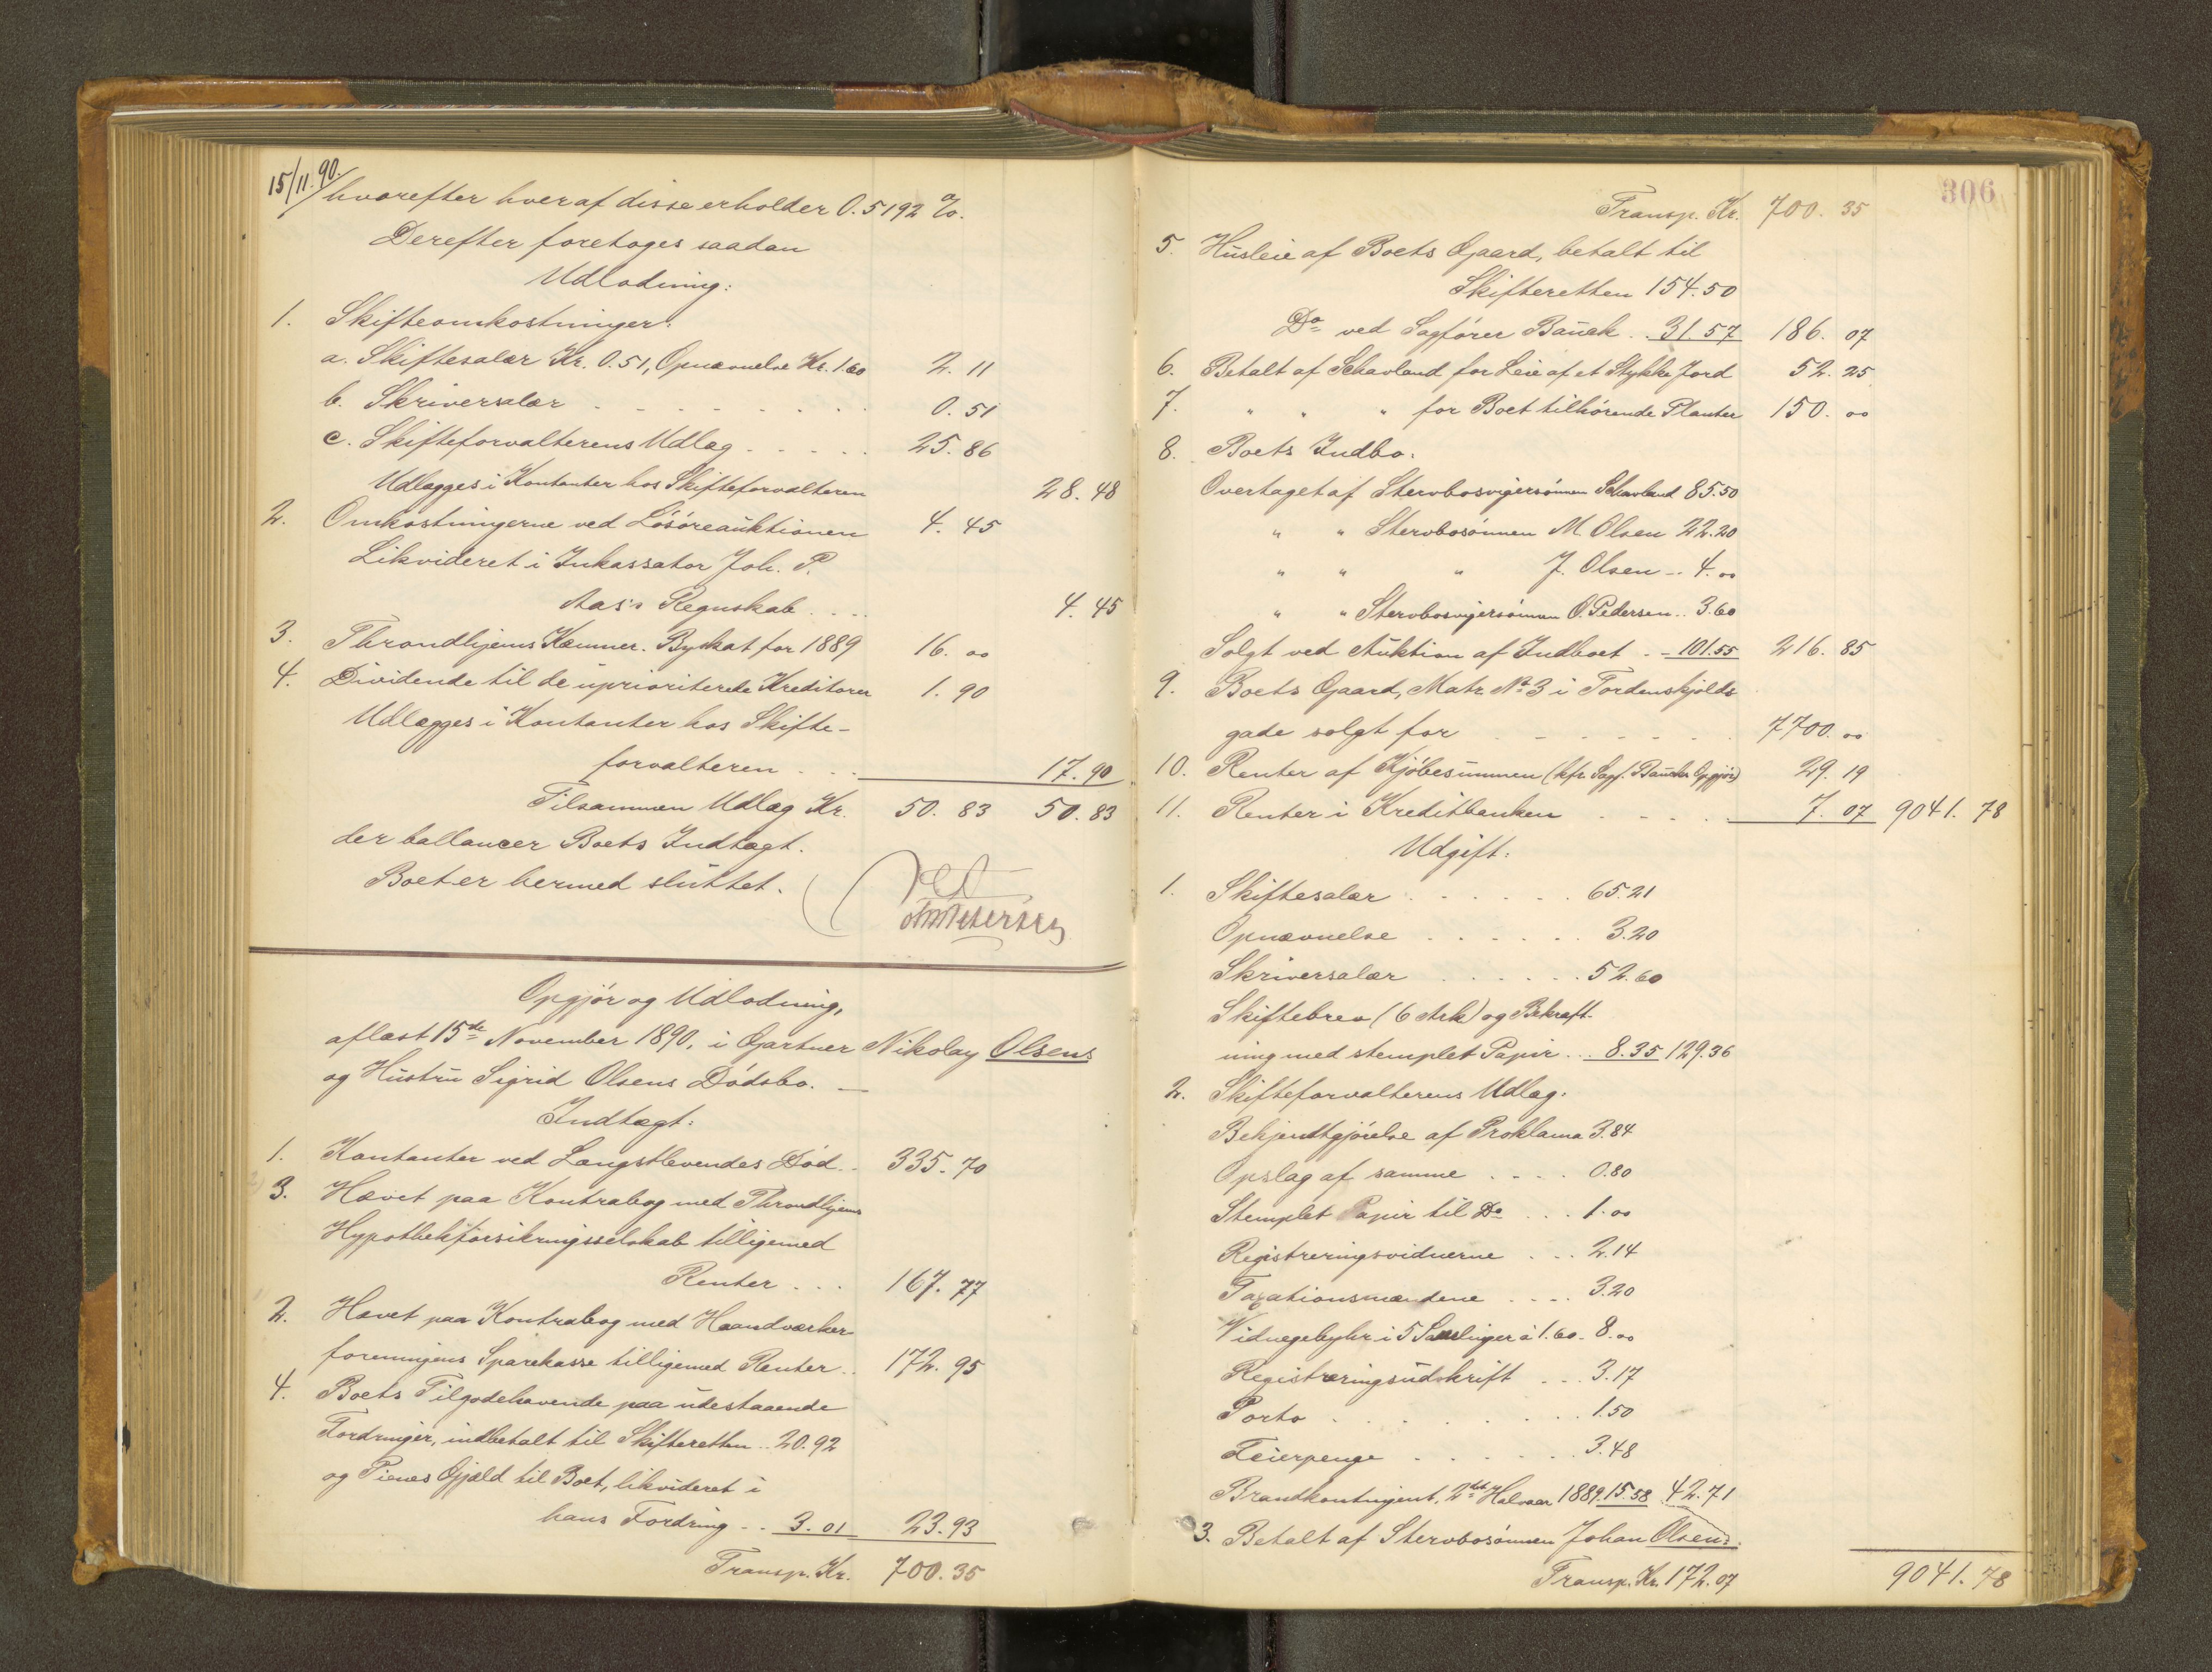 15/11.90.
hvorefter hver af disse erholder 0.5192 %.
Derefter foretoges saadan
Udlodning:
1. Skifteomkostninger:
a. Skiftesalær Kr. 0.51, Opnævnelse Kr. 1.60 2.11
b. Skriversalær 0.51
c. Skifteforvalterens Udlæg 25.86
Udlægges i Kontanter hos Skifteforvalteren 28.48
2. Omkostningerne ved Løsøreauktionen 4.45
Likvideret i Inkassator Joh. P.
Aas's Regnskab 4.45
3. Throndhjems Kæmner. Byskat for 1889 16.00
4. Dividende til de uprioriterede Kreditorer 1.90
Udlægges i Kontanter hos Skifte-
forvalteren 17.90
Tilsammen Udlæg Kr. 50.83 50.83
der ballancer Boets Indtægt.
Boet er hermed sluttet.
Opgjør og Udlodning,
aflæst 15de November 1890, i Gartner Nikolay Olsens
og Hustru Sigrid Olsens Dødsbo.
Indtægt:
1. Kontanter ved Længstlevendes Død 335.70
3. Hævet paa Kontrabog med Throndhjems
Hypothekforsikringsselskab tilligemed
Renter 167.77
2. Hævet paa Kontrabog med Haandværker
foreningens Sparekasse tilligemed Renter 172.95
4. Boets Tilgodehavende paa udestaaende
Fordringer, indbetalt til Skifteretten 20.92
og Pienes Gjæld til Boet, likvideret i
hans Fordring 3.01 23.93
Transp. Kr. 700.35
306
Transp. Kr. 700.35
5. Husleie af Boets Gaard, betalt til
Skifteretten 154.50
Do ved Sagfører Bauck 31.57 186.07
6. Betalt af Schavland for Leie af et Stykke Jord 52.25
7. " " " for Boet tilhørende Planter 150.00
8. Boets Indbo.
Overtaget af Stervbosvigersønnen Schavland 85.50
" " Stervbosønnen M. Olsen 22.20
" " " J. Olsen 4.00
" " Stervbosvigersønnen O. Pedersen 3.60
Solgt ved Auktion af Indboet 101.55 216.85
9. Boets Gaard, Matr. No 3 i Tordenskjolds
gade solgt for 7700.00
10. Renter af Kjøbesummen (kfr. Sagf. Baucks Opgjør) 29.19
11. Renter i Kreditbanken 7.07 9041.78
Udgift:
1. Skiftesalær 65.21
Opnævnelse 3.20
Skriversalær 52.60
Skiftebrev (6 Ark) og Bekræft-
ning med stemplet Papir 8.35 129.36
2. Skifteforvalterens Udlæg.
Bekjendtgjørelse af Proklama 3.84
Opslag af samme 0.80
Stemplet Papir til Do 1.00
Registreringsvidnerne 2.14
Taxationsmændene 3.20
Vidnegebyhr i 5 Samlinger à 1.60 8.00
Registreringsudskrift 3.17
Porto 1.50
Feierpenge 3.48
Brandkontingent, 2det Halvaar 1889 15.58 42.71
3. Betalt af Stervbosønnen Johan Olsen:
Transp. Kr. 172.07 9041.78